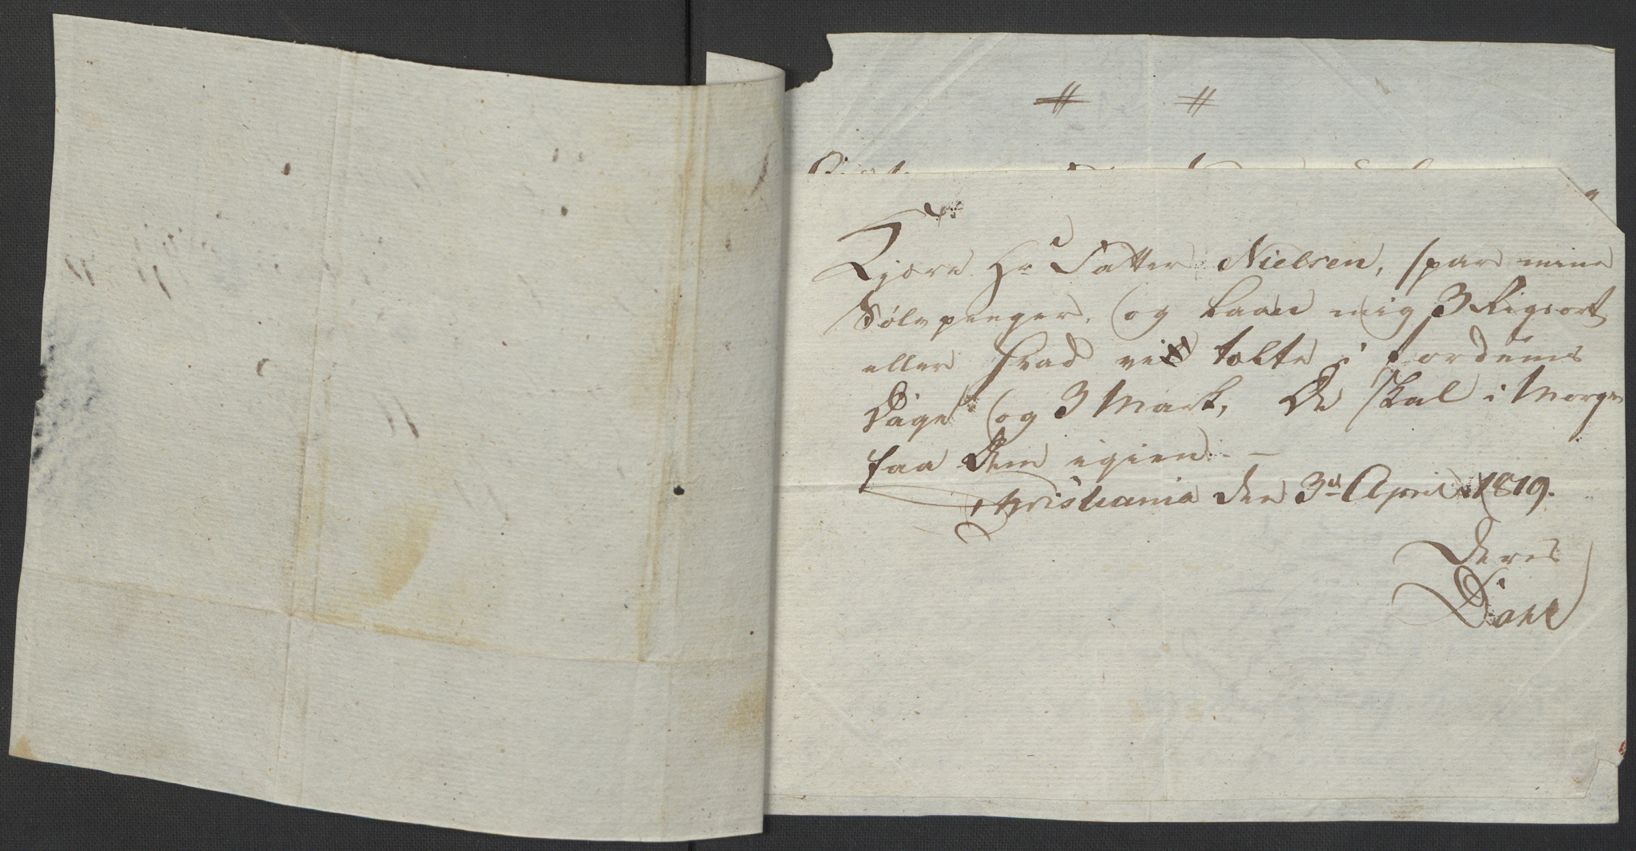 # #
Kjære Hr Fatter Nielsen, spar mine
Sølvpenger, og laan mig 3 Rigsort
eller hvad vi talte i fordums
Dage og 3 Mark, De skal i Morgen
faa dem igien. –
Christiania den 3d April 1819.
Deres
Dahl